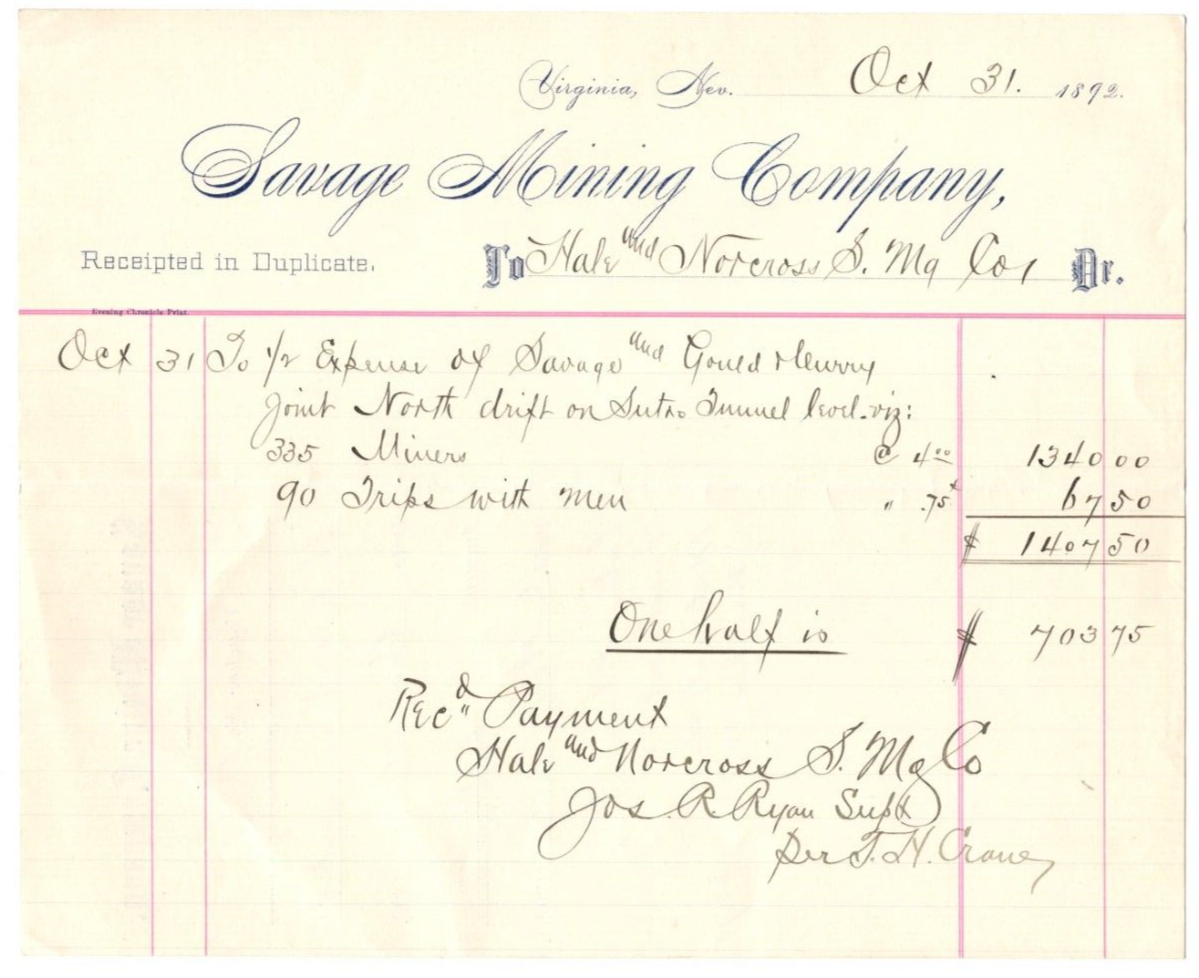 Virginia, Nev. Oct 31. 1892.
Savage Mining Company,
Receipted in Duplicate. To Hale and Norcross S. Mg Co, Dr.
Evening Chronicle Print.
Oct 31 To 1/2 Expense of Savage and Gould & Curry
Joint North drift on Sutro Tunnel level. viz:
335 Miners @ 4.00 1340 00
90 Trips with men " .75 67 50
$ 1407 50
One half is $ 703 75
Recd Payment
Hale and Norcross S. Mg Co
Jos. R. Ryan Supt
Per T. H. Crane